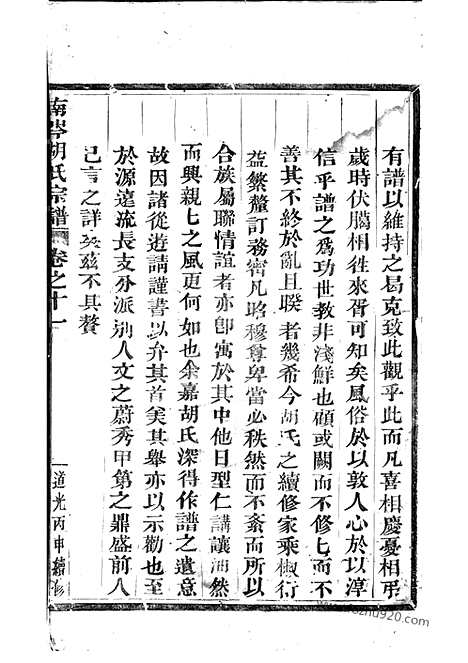 有譜以維持之曷克致此觀乎此而凡喜相慶憂相弔
歲時伏臘相徃來胥可知矣風俗於以敦人心於以淳
信乎譜之爲功世教非淺鮮也顧或闕而不修七而不
善其不終於亂且睽者幾希今胡氏之續修家乘椒衍
益繁釐訂務密凡昭穆尊卑當必秩然而不紊而所以
合族屬聯情誼者亦卽寓於其中他日型仁講讓油然
而興親七之風更何如也余嘉胡氏深得作譜之遺意
故因諸從遊請謹書以弁其首美其舉亦以示勸也至
於源遠流長支分派別人文之蔚秀甲第之鼎盛前人
已言之詳矣茲不具贅
南岑胡氏宗譜 卷之十一
道光丙申續修
zhou920.com